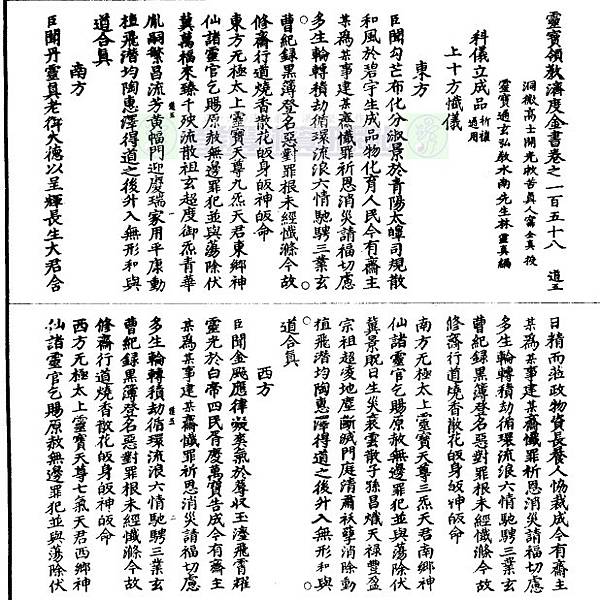 靈寶領教濟度金書卷之一百五十八 道五
洞微高士開光救苦真人甯全真授
靈寶通玄弘教水南先生林靈真編
科儀立成品 祈禳通用
上十方懺儀
東方
臣聞勾芒布化分淑景於青陽太皥司規散
和風於碧宇生成品物化育人民今有齋主
某為某事建某齋懺罪祈恩消災請福切慮
多生輪轉積劫循環流浪六情馳騁三業玄
曹紀錄黑簿登名惡對罪根未經懺滌今故
修齋行道燒香散花皈身皈神皈命
東方无極太上靈寶天尊九炁天君東鄉神
仙諸靈官乞賜原赦無邊罪犯並與蕩除伏
冀萬福來臻千殃流散祖玄超度御炁青華
胤嗣繁昌流芳黃幅門迎慶瑞家用平康動
植飛潛均陶惠澤得道之後升入無形和與
道合真
南方
臣聞丹靈真老衍火德以呈輝長生大君含
日精而蒞政物資長養人恊裁成今有齋主
某為某事建某齋懺罪祈恩消災請福切慮
多生輪轉積劫循環流浪六情馳騁三業玄
曹紀錄黑簿登名惡對罪根未經懺滌今故
修齋行道燒香散花皈身皈神皈命
南方无極太上靈寶天尊三炁天君南鄉神
仙諸靈官乞賜原赦無邊罪犯並與蕩除伏
冀景貺日生災衰雲散子孫昌熾天祿豐盈
宗祖超凌地壘斷滅門庭清肅祅孽消除動
植飛潛均陶惠澤得道之後升入無形和與
道合真
西方
臣聞金飈應律凝爽氣於蓐收玉㙜飛霄耀
靈光於白帝四民胥慶萬寶告成今有齋主
某為某事建某齋懺罪祈恩消災請福切慮
多生輪轉積劫循環流浪六情馳騁三業玄
曹紀錄黑簿登名惡對罪根未經懺滌今故
修齋行道燒香散花皈身皈神皈命
西方无極太上靈寶天尊七氣天君西鄉神
仙諸靈官乞賜原赦無邊罪犯並與蕩除伏